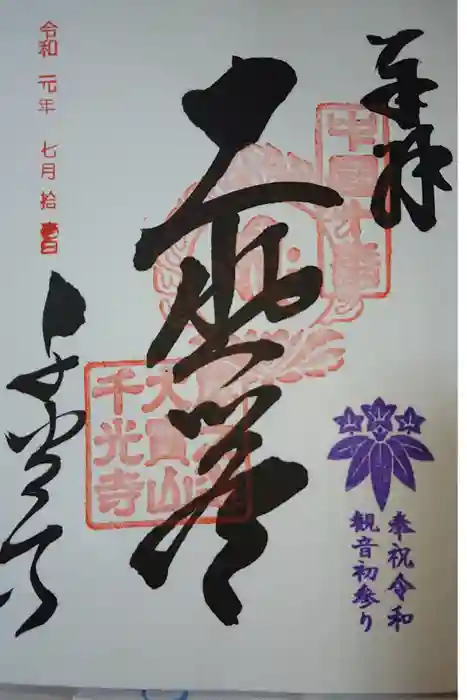 奉拝
中國十番
奉祝令和
観音初参り
大悲閣
大寶山
千光寺
千光寺
令和元年七月拾壹日